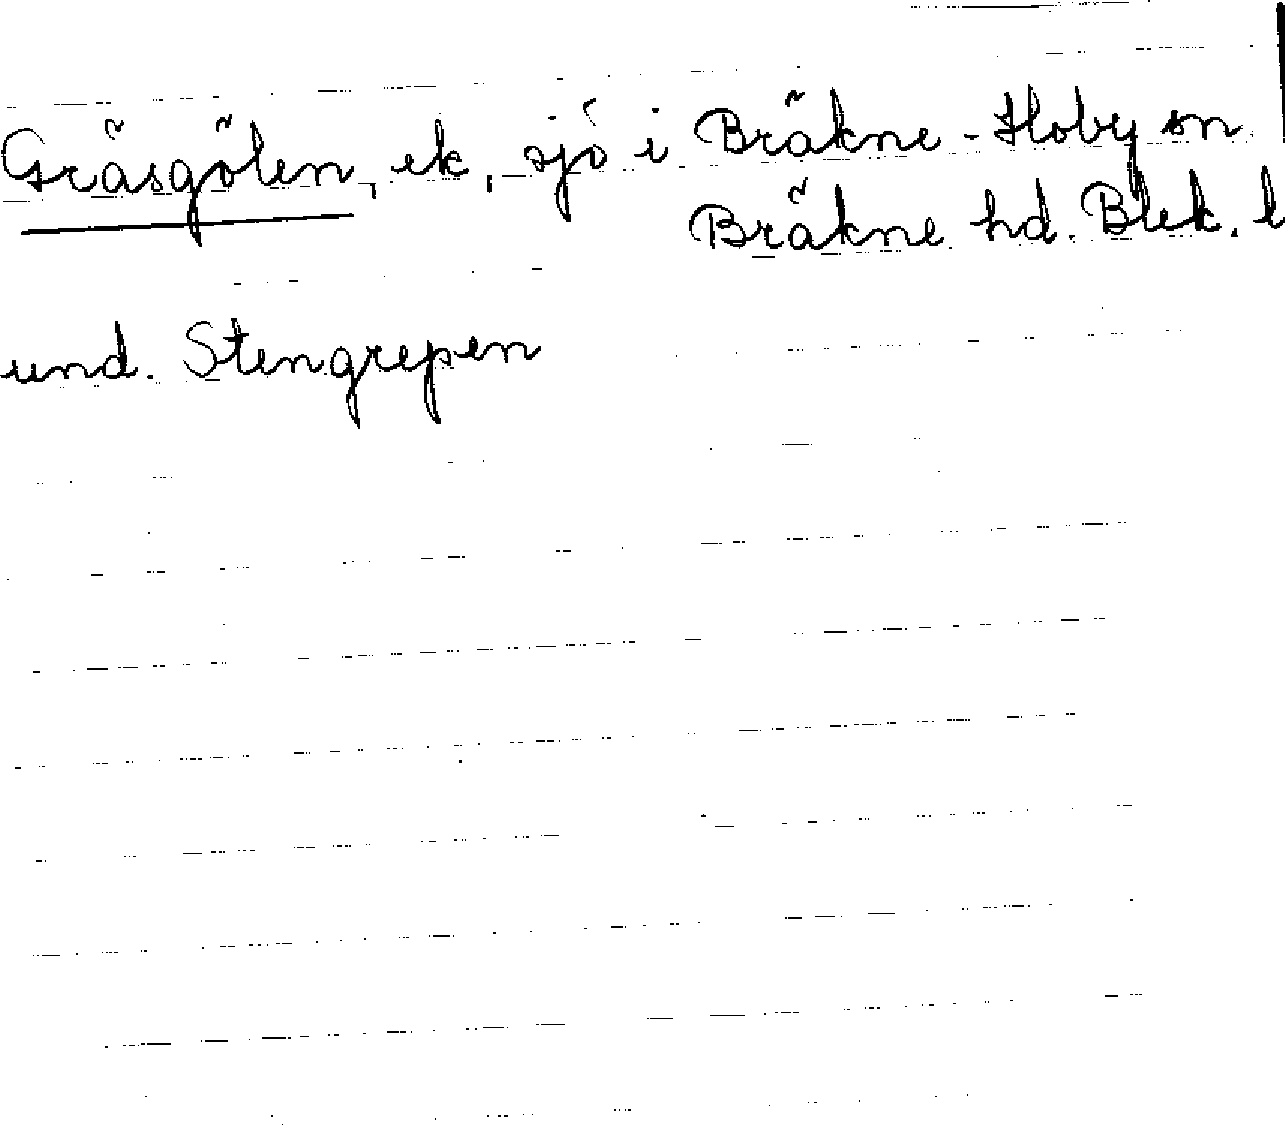 Gräsgölen, ek, sjö i Bräkne-Hoby sn
Bräkne hd. Blek. l
und. Stengrepen